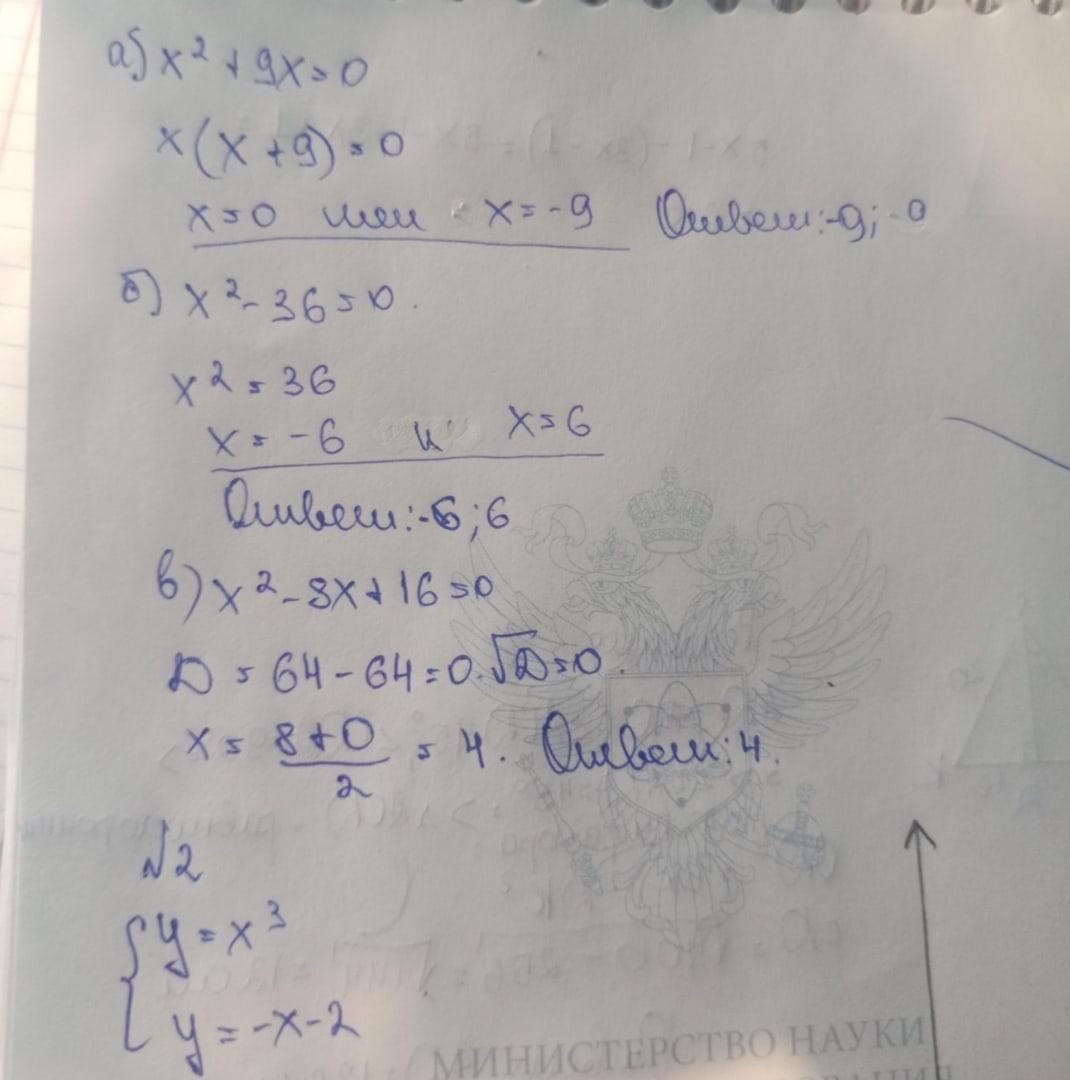 а) x² + 9x = 0
x(x + 9) = 0
x = 0 или x = -9 Ответ: -9; 0
б) x² - 36 = 0.
x² = 36
x = -6 и x = 6
Ответ: -6; 6
в) x² - 8x + 16 = 0
D = 64 - 64 = 0. √D = 0.
x = (8 + 0)/2 = 4. Ответ: 4.
√2
{ y = x³
y = -x - 2
МИНИСТЕРСТВО НАУКИ